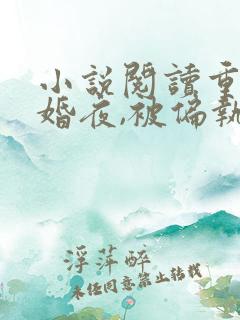 小說閱讀重
婚夜,被偏執
浮萍醉
未经同意禁止转载